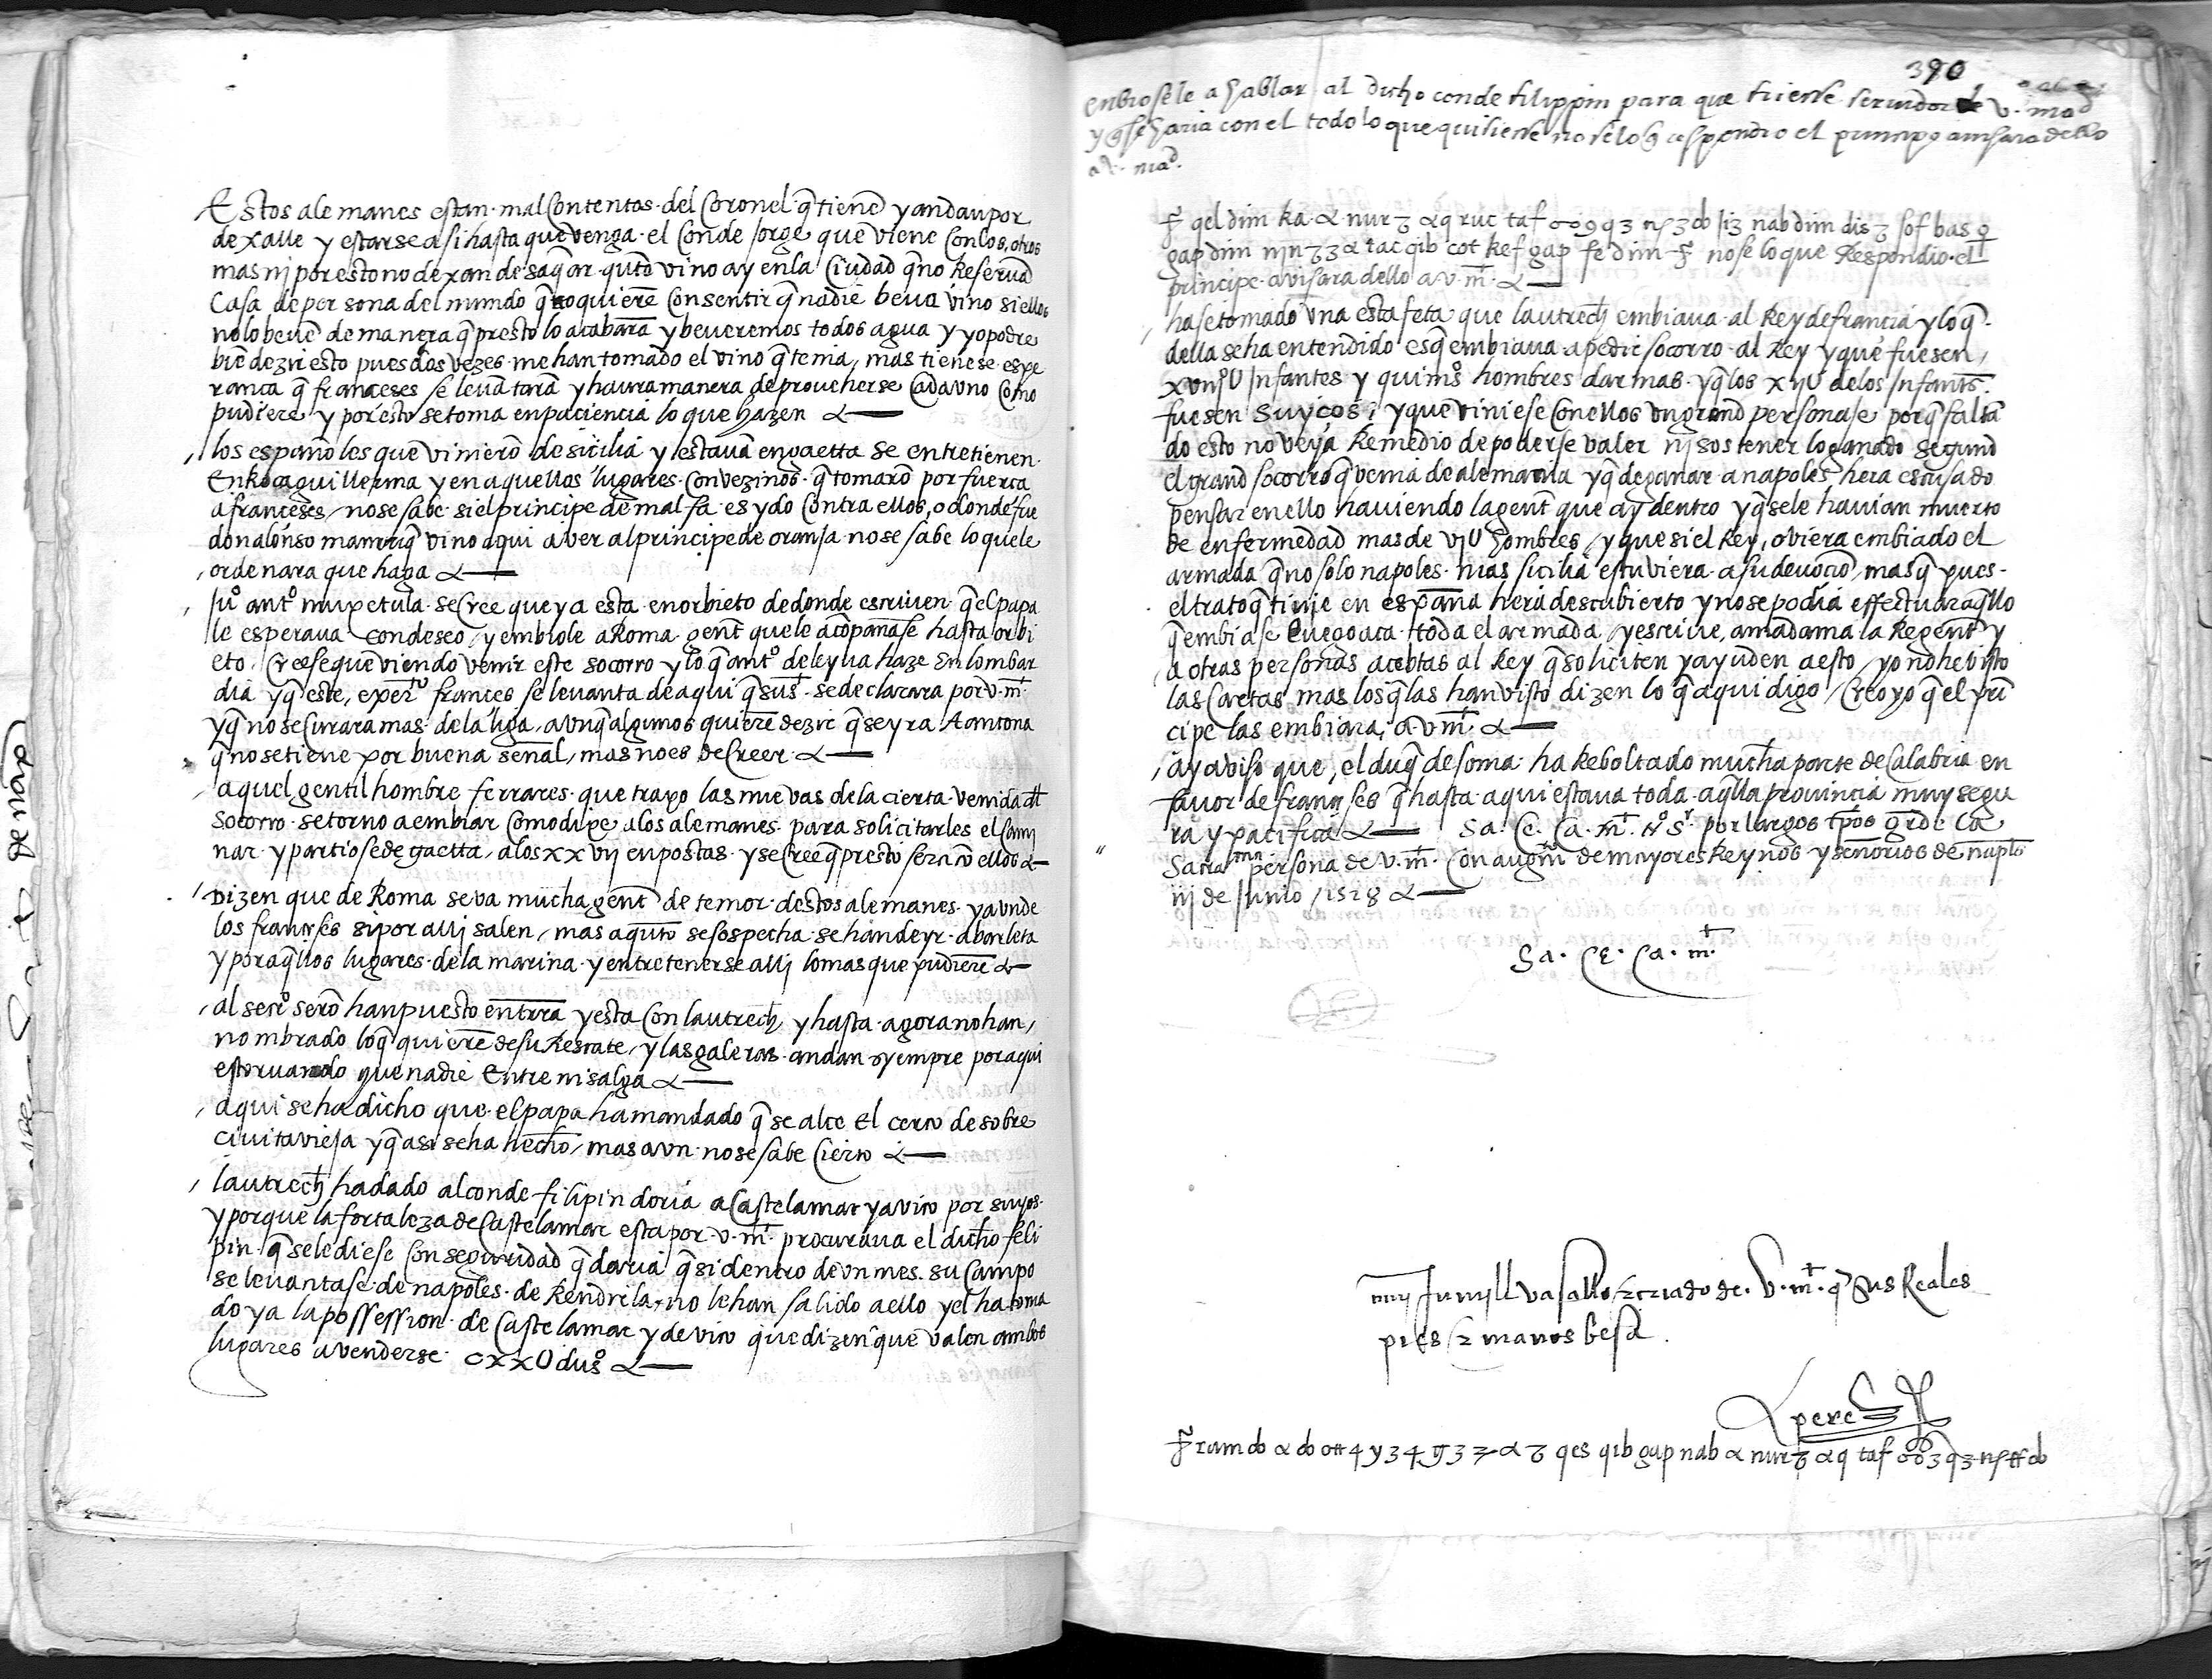 Estos alemanes estan mal Contentos del Coronel q̃ tienẽ y andan por
dexalle y estarse asi hasta que venga el Conde Jorge que viene Con los otros
mas nj por esto no dexan de saq̃ar qũto vino ay en la Ciudad q̃ no Reseruã
Casa de persona del mundo q̃ no quierẽ Consentir q̃ nadie beua vino si ellos
no lo beuẽ de manera q̃ presto lo acabarã y beueremos todos agua y yo podre
biẽ dezir esto pues dos vezes me han tomado el vino q̃ tenia, mas tienese espe
rança q̃ franceses se leuãtarã y haura manera de proueherse Cada vno Como
pudiere y por esto se toma en paciencia lo que hazen
los españoles que vinierõ de sicilia y estauã en gaetta se entretienen
En Rocaguillerma y en aquellos lugares Convezinos q̃ tomarõ por fuerça
a franceses, no se sabe si el principe de malfa es ydo Contra ellos, o donde fue
don alonso manrriq̃ vino aqui a ver al principe de oranja no se sabe lo que le
ordenara que haga
Juº antº muxetula se Cree que ya esta en orbieto de donde escriuen q̃ el papa
le esperaua con deseo, y embiole a Roma gent̃ que le acõpañase hasta orbi
eto, Creese que viendo venir este socorro y lo q̃ antº de leyua haze En lombar
dia y q̃ este, exerᵗᵒ frances se leuanta de aqui q̃ su sᵗ se declarara por v. mᵗ.
y q̃ no se Curara mas de la liga, avnq̃ algunos quierẽ dezir q̃ se yra A antona
q̃ no se tiene por buena señal, mas no es de Creer
aquel gentil hombre ferrares que traxo las nueuas de la cierta venida dl
socorro se torno a embiar Como dixe a los alemanes para solicitarles el Cami
nar y partiose de gaetta, a los xx vij en postas y se Cree q̃ presto sera cõ ellos
Dizen que de Roma se va mucha gent̃ de temor destos alemanes y a vn de
los franceses si por allj salen, mas a qũto se sospecha se han de yr a barleta
y por aq̃llos lugares de la marina y entretenerse allj lo mas que pudierẽ
al serº serõ han puesto entrra y esta Con lautrech, y hasta agora no han,
nombrado lo q̃ quierẽ de su Rescate, y las galeras andan syempre por aqui
estoruando que nadie Entre ni salga
aqui se ha dicho que el papa ha mandado q̃ se alce El cerco de sobre
ciuitavieja y q̃ asi se ha hecho, mas avn no se sabe Cierto
lautrech ha dado al conde filipin doria a Castelamar y a vico por suyos
y porque la fortaleza de Castelamar esta por v. mᵗ. procuraua el dicho feli
pin q̃ se le diese Con seguridad q̃ daria q̃ si dentro de vn mes su Campo
se leuantase de napoles de Rendrila, no le han salido a ello y el ha toma
do ya la possession de Castelamar y de vico que dizen que valen ambos
lugares a venderse cxxU dusº
390
enbiosele a hablar al dicho conde filippin para que fuesse seruidor de v. mad
y q̃ se haria con el todo lo que quisiesse no se lo q̃ respondio el principe auisara dello
a v. mad.
gel dim ka α nur ʒ αq ruc taf nab dim dis ʒ sof bas q
gap dim tac qib cot kef gap fe dim no se lo que Respondio el
principe avisara dello a v. mᵗ.
hase tomado vna estafeta que lautrech embiaua al Rey de francia y lo q̃
della se ha entendido es q̃ embiaua a pedir socorro al Rey y que fuesen,
xvnjºU Infantes y quinisº hombres darmas y q̃ los xijU de los Infants̃
fuesen suyços, y que viniese Con ellos vn grand personaje porq̃ faltã
do esto no veya Remedio de poderse valer nj sostener lo ganado segund
el grand socorro q̃ venia de alemania y q̃ de ganar a napoles hera escusado
pensar en ello hauiendo la gent̃ que ay dentro y q̃ se le hauian muerto
de enfermedad mas de vjU hombres, y que si el Rey, oviera embiado el
armada q̃ no solo napoles mas sicilia estuviera a su deuociõ, mas q̃ pues
el trato q̃ tinie en españa hera descubierto y no se podia effectuar aq̃llo
q̃ embiase luego aca toda el armada, y escriue, a madama la Regent̃ y
a otras personas acebtas al Rey q̃ soliciten y ayuden a esto, yo no he visto
las Cartas mas los q̃ las han visto dizen lo q̃ aqui digo, Creo yo q̃ el prĩ
cipe las embiara, a v. mᵗ.
ay aviso que, el duq̃ de soma ha Reboltado mucha parte de Calabria en
fauor de franceses q̃ hasta aqui estaua toda aq̃lla prouincia muy segu
ra y pacifica Sa. Ce. Ca. mᵗ. Nº Sʳ. por largos tpõs grde la
Sacraᵐᵃ persona de v. mᵗ. Con augmᵗᵒ de mayores Reynos y señorios de napls̃
iij de Junio, 1528
Sa. Ce. Ca. mᵗ.
muy humill vasallo & criado de. V. mᵗ. q̃ sus Reales
pies & manos besa.
perez
ram do α do 4 y 3 4 α ʒ qes qib gap nab α nur ʒ αq taf